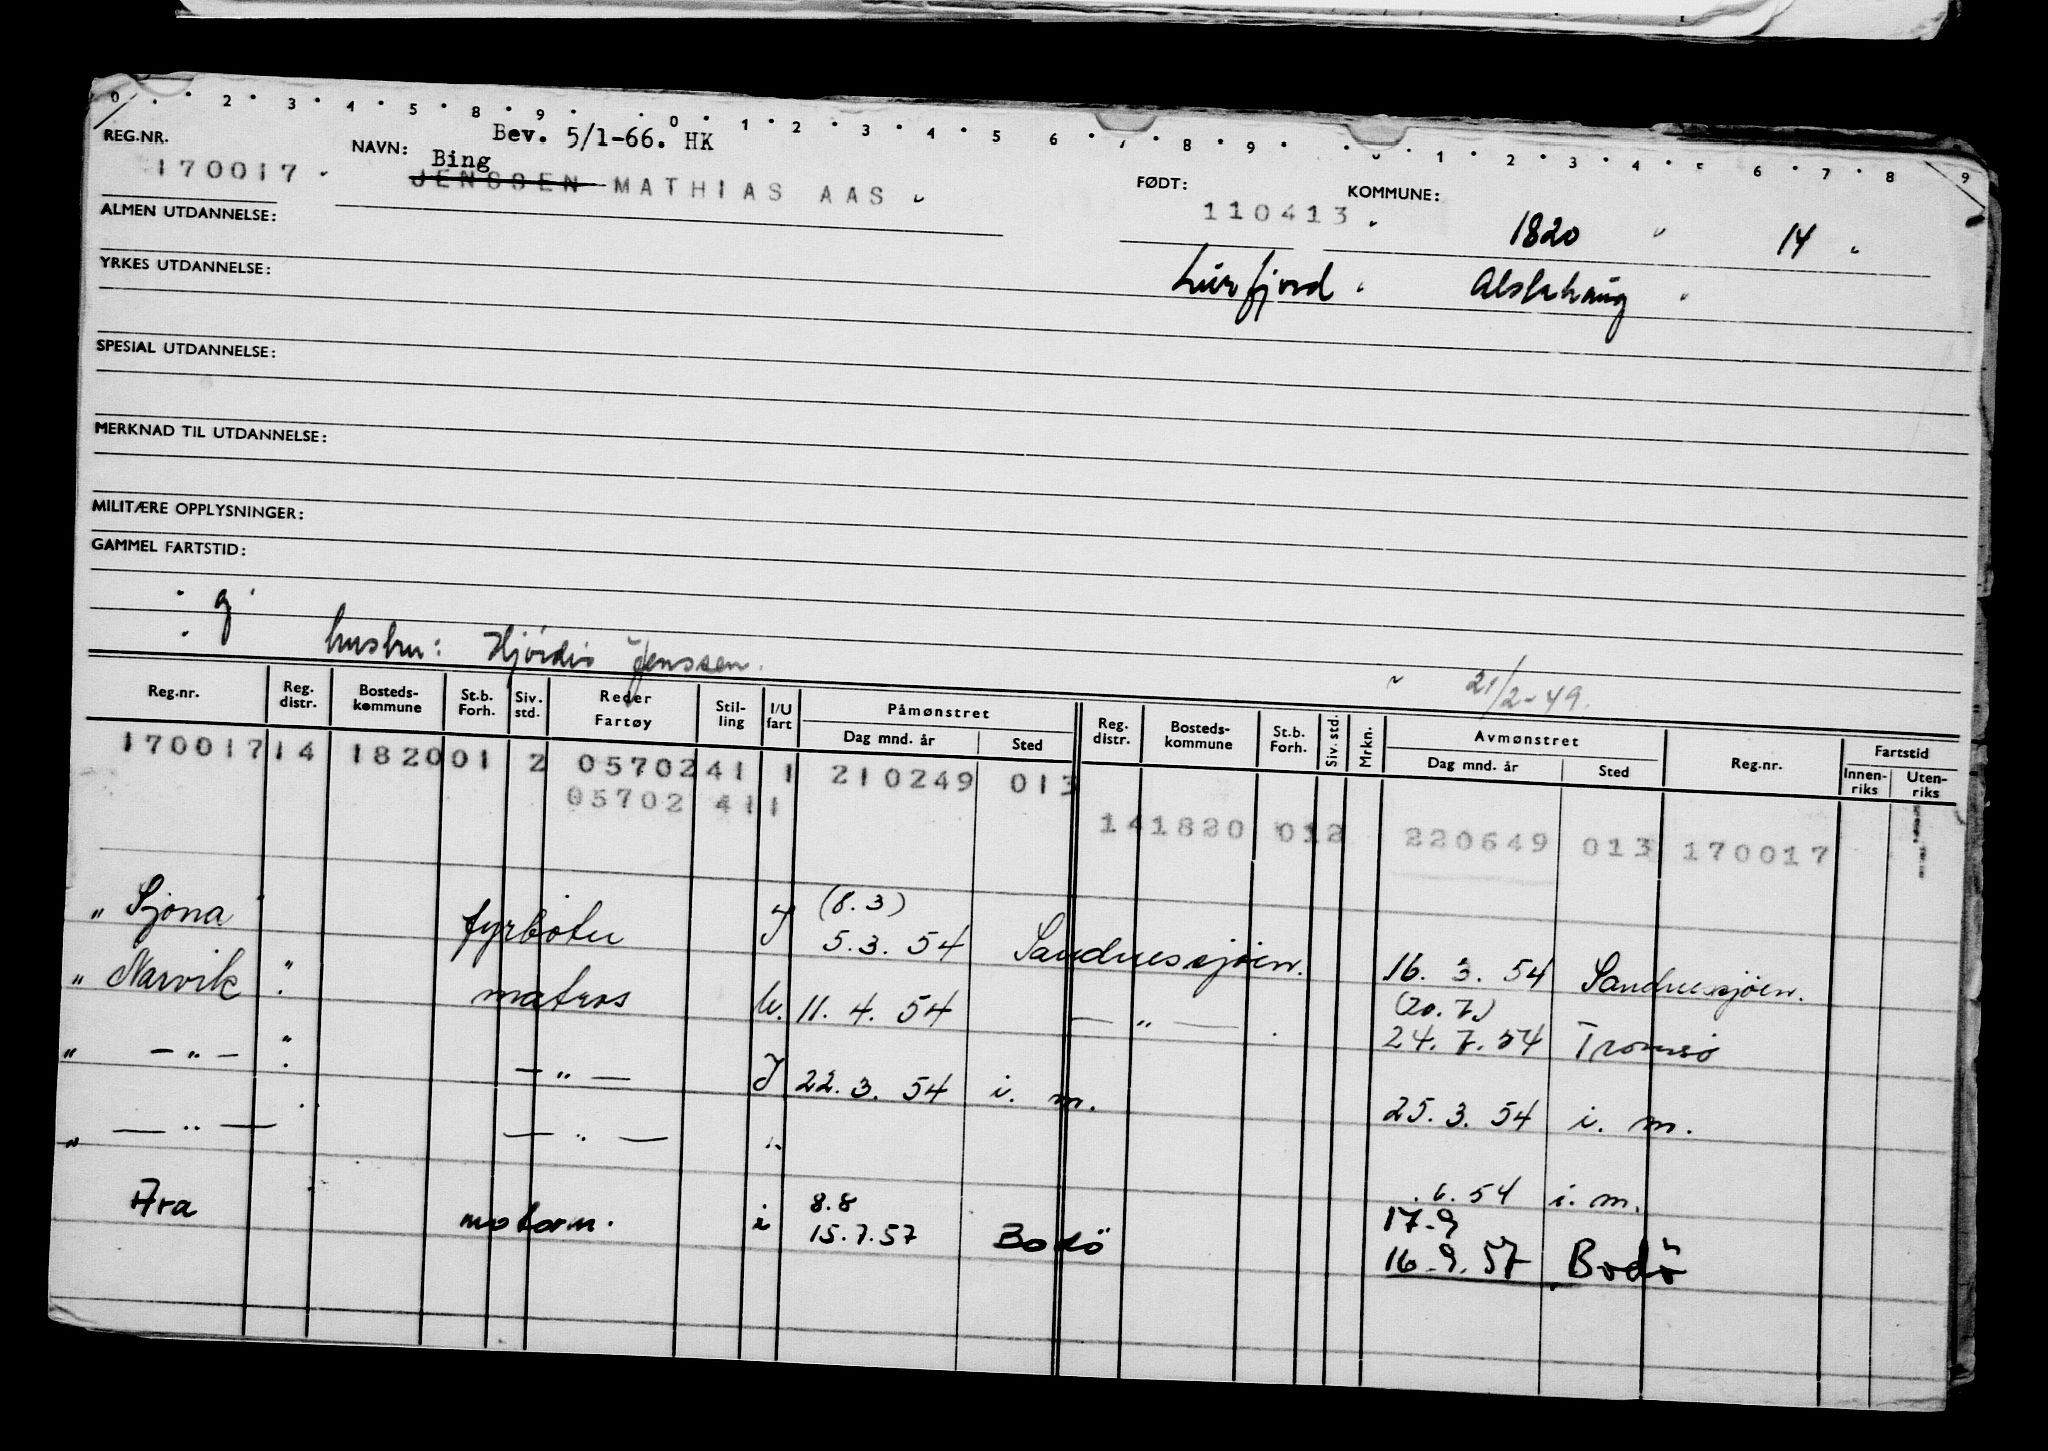 0 . . 2 . 3 . 4 . 5 . 8 . 9 . . 0 . 1 . 2 . 3 . 4 . 5 . 6 . 7 . 8 . 9 . . 1 . 2 . 3 . 4 . 6 . 7 . 8 . 9
Bev. 5/1-66. HK
REG.NR. NAVN: Bing FØDT: KOMMUNE:
170017 JENSSEN MATHIAS AAS 110413 1820 14
ALMEN UTDANNELSE:
YRKES UTDANNELSE: Alstahaug
SPESIAL UTDANNELSE:
MERKNAD TIL UTDANNELSE:
MILITÆRE OPPLYSNINGER:
GAMMEL FARTSTID:
g
hustru: Hjørdis Jenssen. 21/2-49.
Reg.nr. Reg. distr. Bosteds- kommune St.b. Forh. Siv. std. Reder Fartøy Stil- ling I/U fart Påmønstret Dag mnd. år Sted Reg. distr. Bosteds- kommune St.b. Forh. Siv. std. Mrkn. Avmønstret Dag mnd. år Sted Reg.nr. Fartstid Innen- riks Uten- riks
170017 14 1820 01 2 05702 41 1 210249 013
05702 41 1
14 1820 01 2 220649 013 170017
(8.3)
" Sjona fyrbøter I 5.3.54 Sandnessjøen. 16.3.54 Sandnessjøen.
(20.7.)
" Narvik " matros U. 11.4.54 — " — . 24.7.54 Tromsø
" — " — " — " — I 22.3.54 i. m. 25.3.54 i. m.
" — " — — " — " .6.54 i. m.
8.8 17-9
Ara motorm. i 15.7.57 Bodö 16.9.57 Bodö